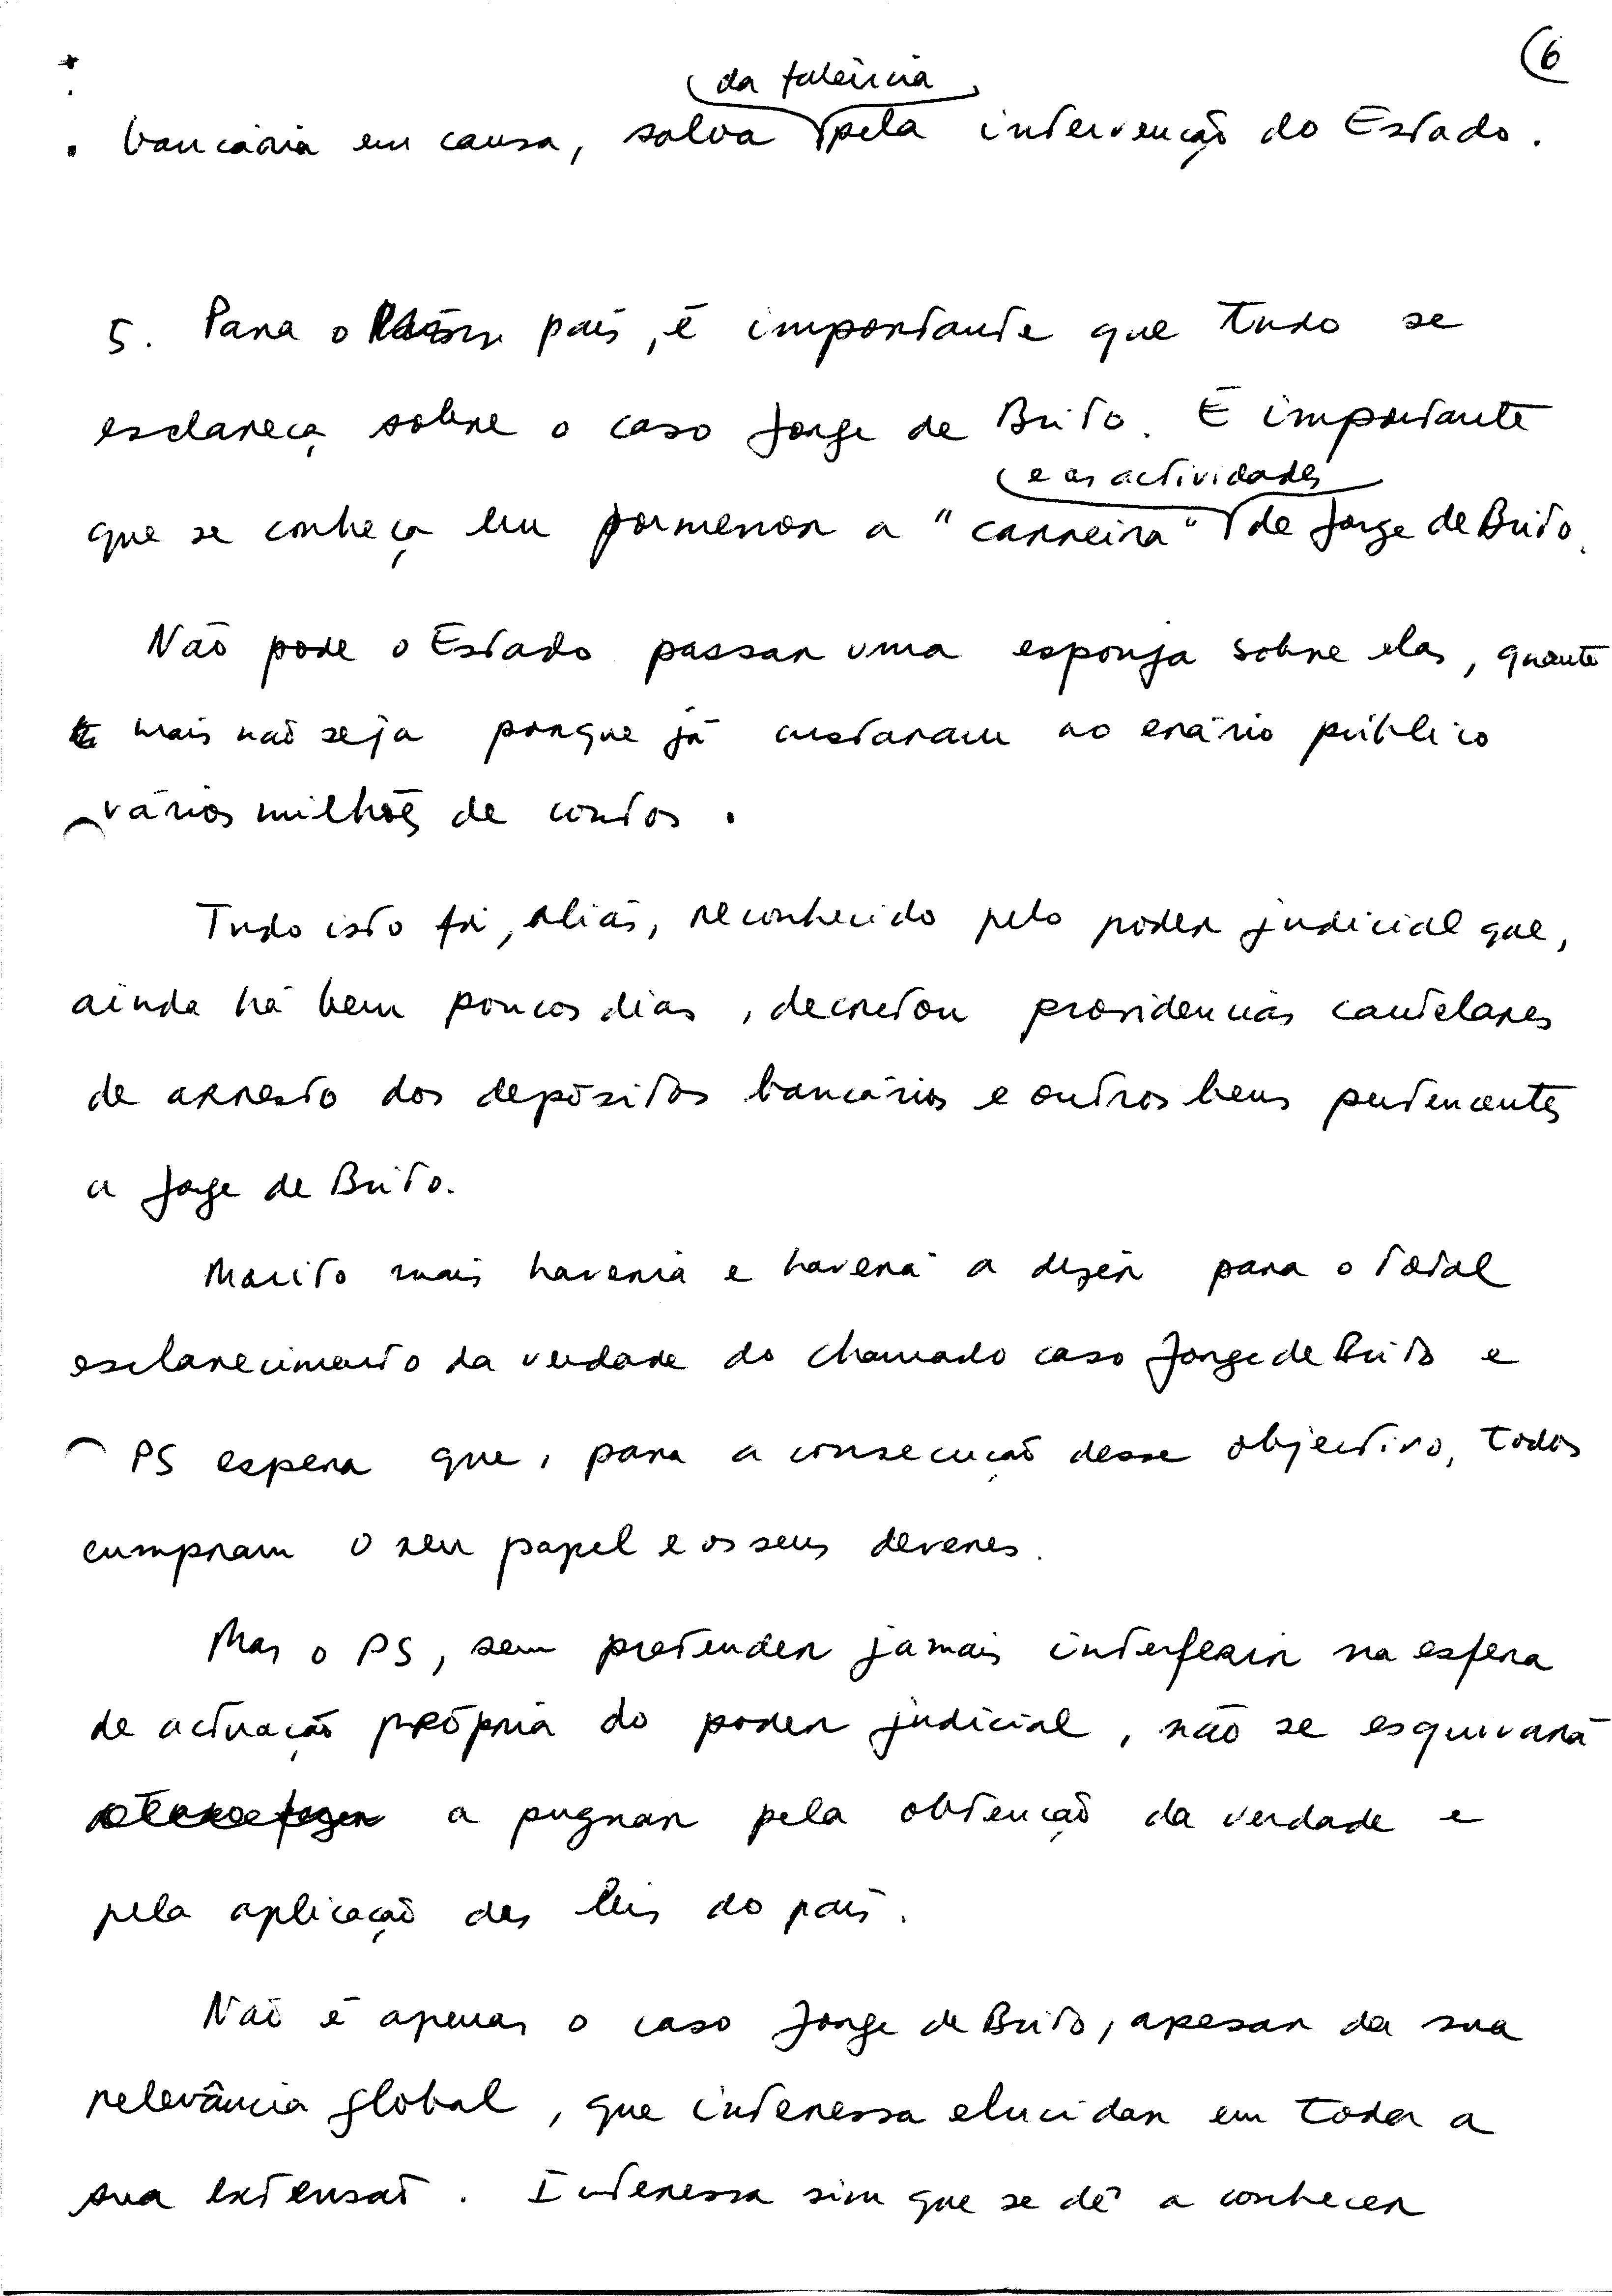 6
da falência
bancária em causa, salva pela intervenção do Estado.
5. Para o país, é importante que tudo se
esclareça sobre o caso Jorge de Brito. É importante
e as actividades
que se conheça em pormenor a "carreira" de Jorge de Brito.
Não pode o Estado passar uma esponja sobre elas, quanto
mais não seja porque já custaram ao erário público
vários milhões de contos.
Tudo isto foi, aliás, reconhecido pelo poder judicial que,
ainda há bem poucos dias, decretou providências cautelares
de arresto dos depósitos bancários e outros bens pertencentes
a Jorge de Brito.
Muito mais haveria e haverá a dizer para o total
esclarecimento da verdade do chamado caso Jorge de Brito e
PS espera que, para a consecução desse objectivo, todos
cumpram o seu papel e os seus deveres.
Mas o PS, sem pretender jamais interferir na esfera
de actuação própria do poder judicial, não se esquivará
a pugnar pela obtenção da verdade e
pela aplicação das leis do país.
Não é apenas o caso Jorge de Brito, apesar da sua
relevância global, que interessa elucidar em toda a
sua extensão. Interessa sim que se dê a conhecer